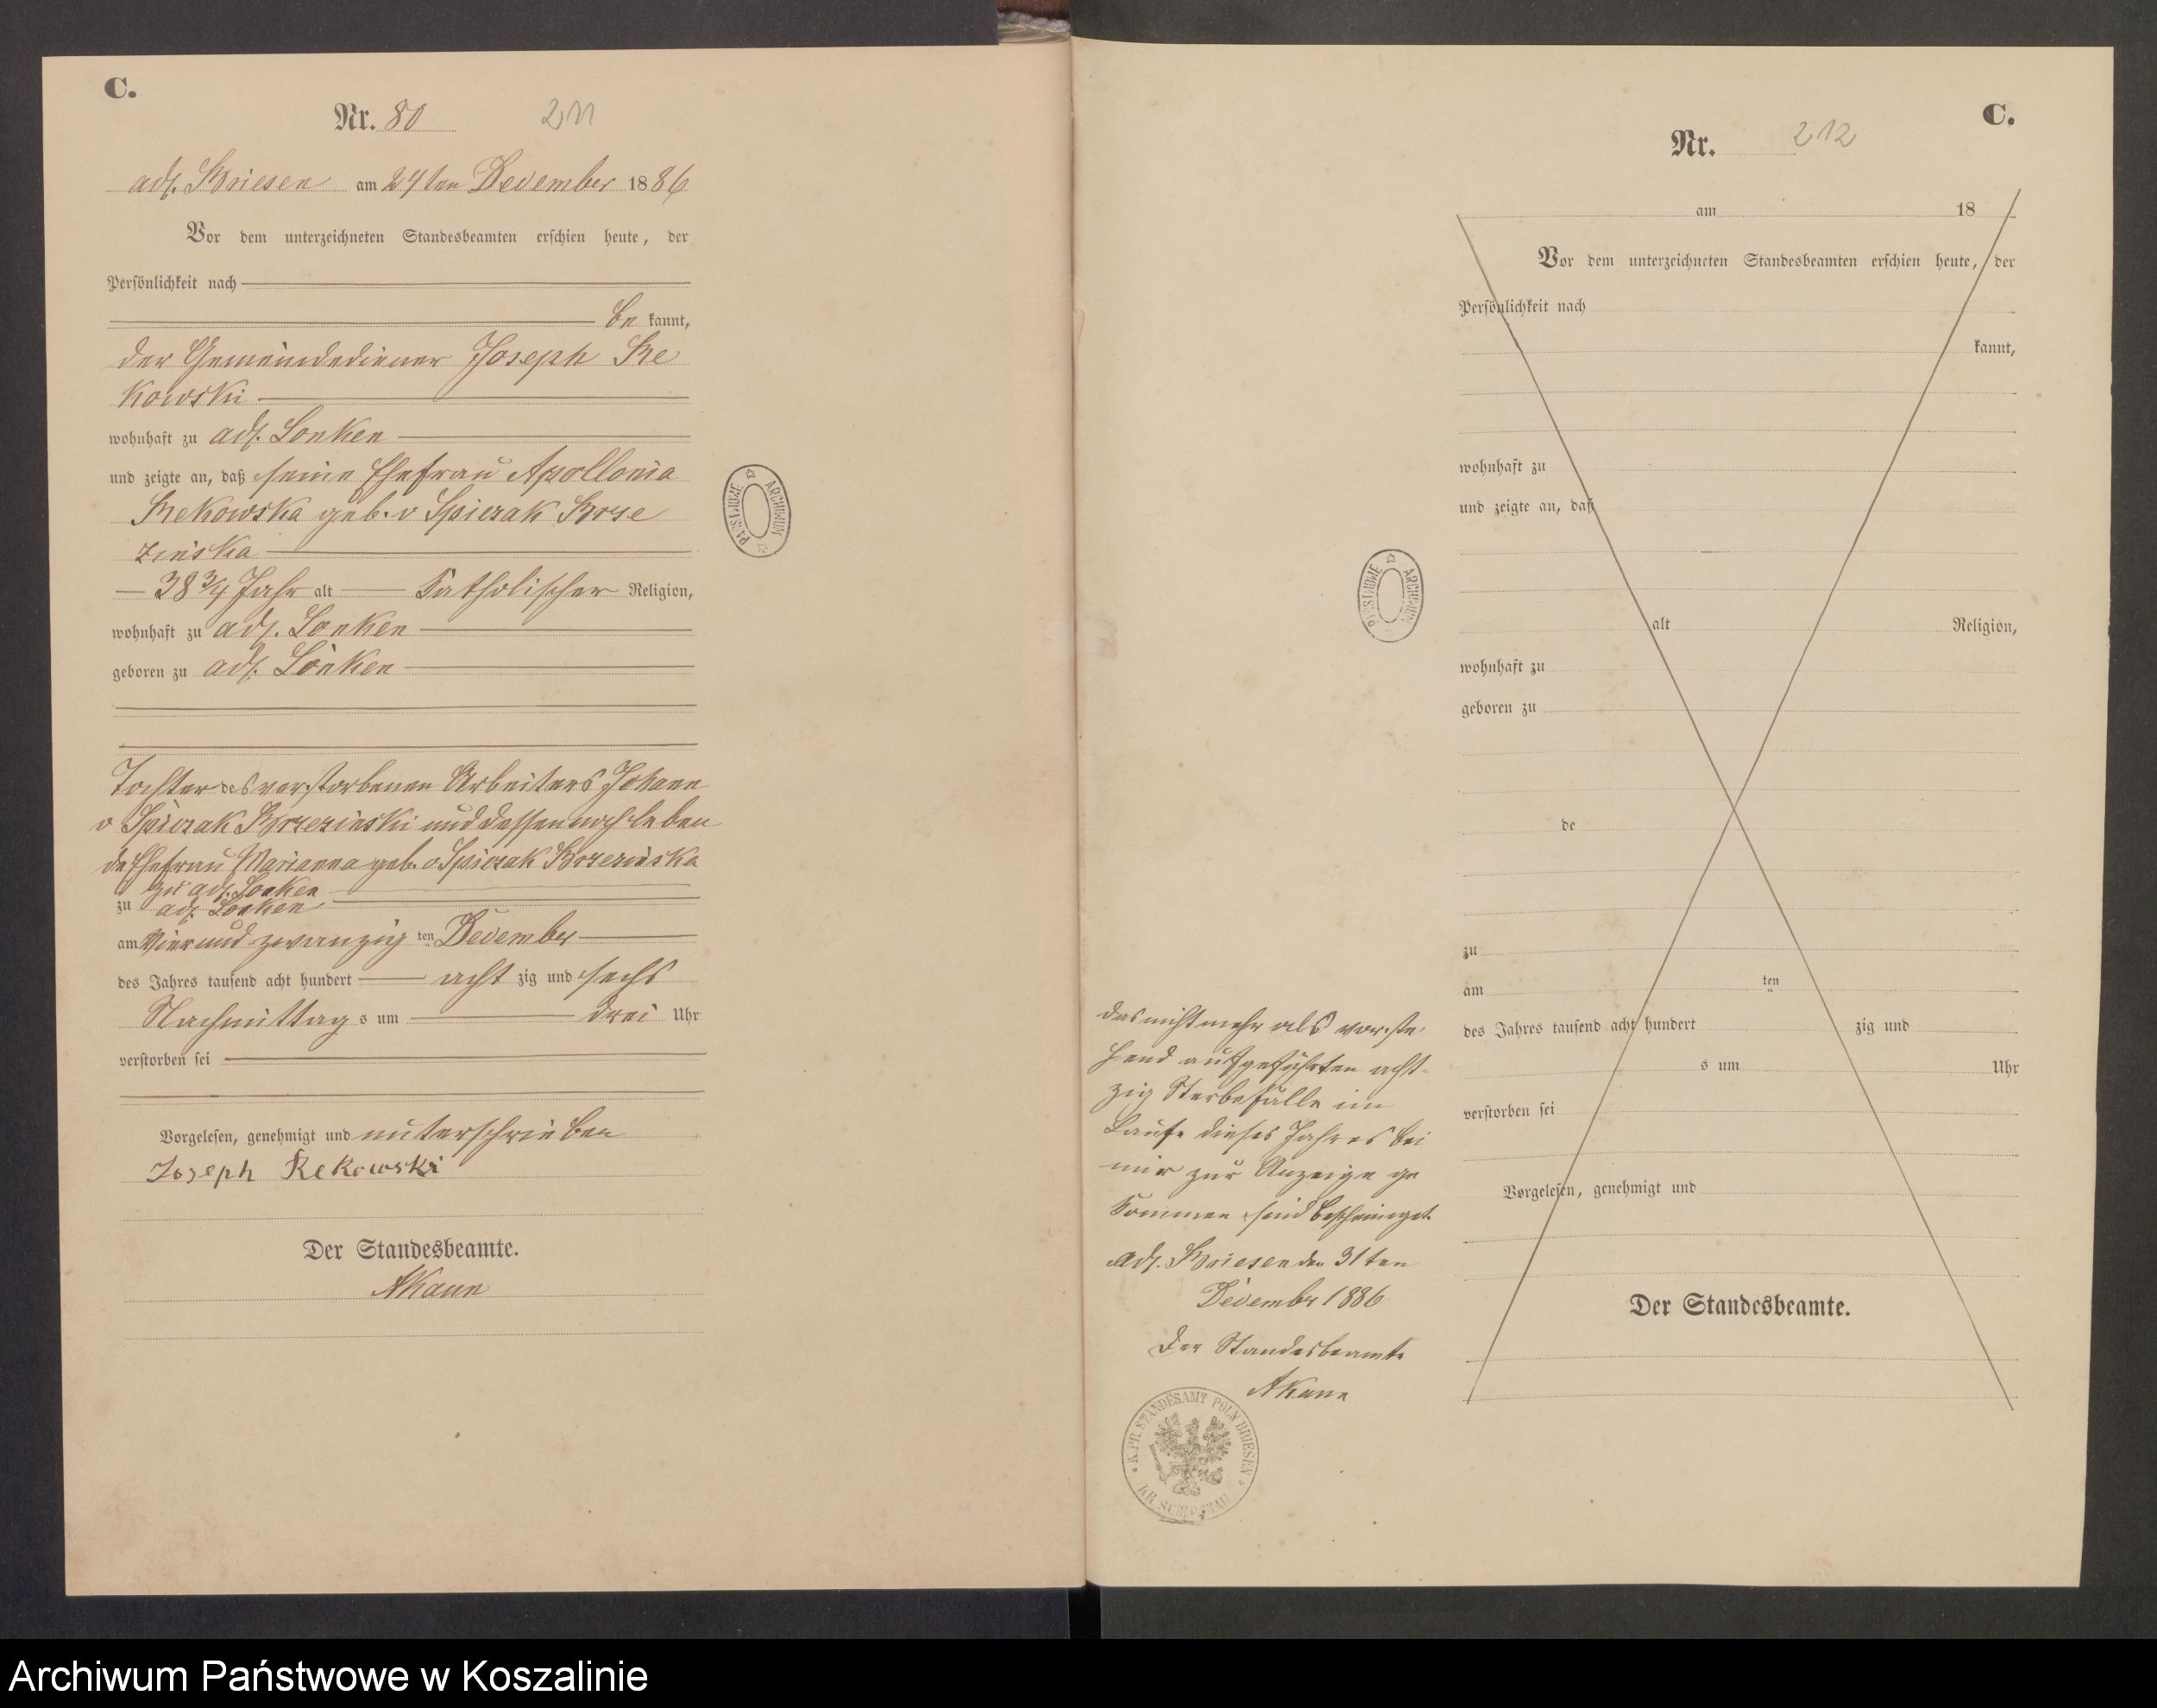 C.
Nr. 80 211
adl. Briesen am 24ten December 1886
Vor dem unterzeichneten Standesbeamten erschien heute, der
Persönlichkeit nach
be kannt,
der Gemeindediener Joseph Re
kowski
wohnhaft zu adl. Lonken
und zeigte an, daß seine Ehefrau Apollonia
Rekowska geb. v Spiczak Brze
zinska
38 3/4 Jahr alt Katholischer Religion,
wohnhaft zu adl. Lonken
geboren zu adl. Lonken
Tochter des verstorbenen Arbeiters Johann
v Spiczak Brzezinski und dessen noch leben
de Ehefrau Marianna geb. v Spiczak Brzezinska
zu adl. Lonken
zu adl. Lonken
am Vier und zwanzig ten December
des Jahres tausend acht hundert acht zig und sechs
Nachmittag s um drei Uhr
verstorben sei
Vorgelesen, genehmigt und unterschrieben
Joseph Rekowski
Der Standesbeamte.
AKann
PAŃSTWOWE ARCHIWUM
C.
Nr. 212
am 18
Vor dem unterzeichneten Standesbeamten erschien heute, der
Persönlichkeit nach
kannt,
wohnhaft zu
und zeigte an, daß
alt Religion,
wohnhaft zu
geboren zu
de
zu
am ten
des Jahres tausend acht hundert zig und
s um Uhr
verstorben sei
Vorgelesen, genehmigt und
Der Standesbeamte.
PAŃSTWOWE ARCHIWUM
das nicht mehr als vorste
hend aufgeführten acht
zig Sterbefälle im
Laufe dieses Jahres bei
mir zur Anzeige ge
kommen sind bescheinigt.
Adl. Briesen den 31ten
Decembr 1886
Der Standesbeamte
AKann
K. PR. STANDESAMT POLN BRIESEN
KR. SCHLOCHAU
Archiwum Państwowe w Koszalinie